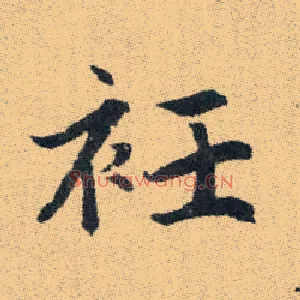 衽
Shufawang.CN